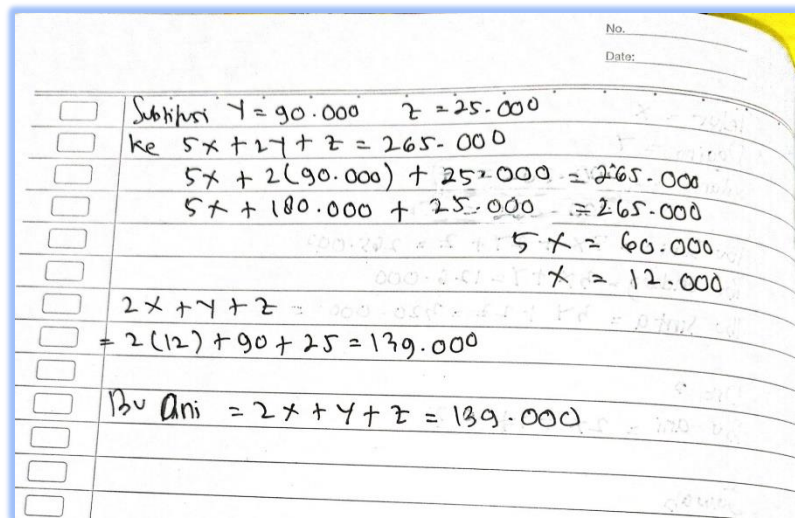 No.
Date:
Subtitusi Y = 90.000 Z = 25.000
ke 5x + 2y + z = 265.000
5x + 2(90.000) + 25.000 = 265.000
5x + 180.000 + 25.000 = 265.000
5x = 60.000
x = 12.000
2x + y + z
= 2(12) + 90 + 25 = 139.000
Bu Ani = 2x + y + z = 139.000